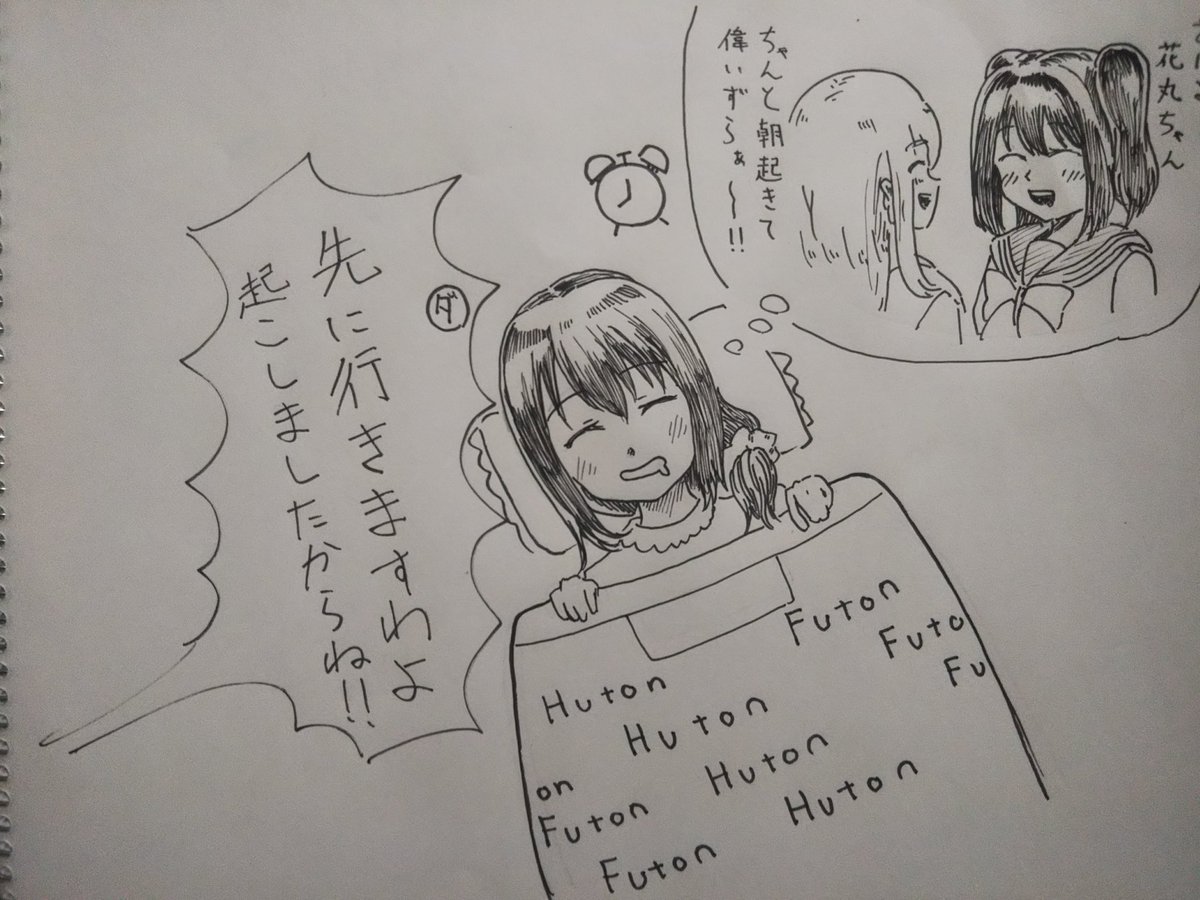 花丸ちゃん
ちゃんと朝起きて
偉いずらぁ〜!!
ダ
先に行きますわよ
起こしましたからね!!
Futon
Futo
Fu
Huton
Huton
Huton
Huton
on
Futon
Futon